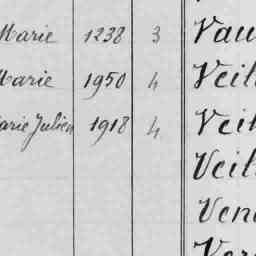 Marie 1238 3 Vau
Marie 1950 4 Veil
Marie Julien 1918 4 Veil
Veil
Ven
Ver